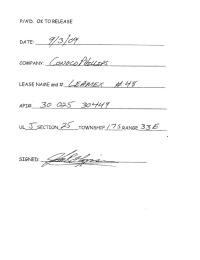 P/A'D. OK TO RELEASE
DATE: 9/3/09
COMPANY: CONOCO PHILLIPS
LEASE NAME and # LEAMEX # 48
API# 30 025 30449
UL J SECTION 25 TOWNSHIP 17S RANGE 33E
SIGNED: